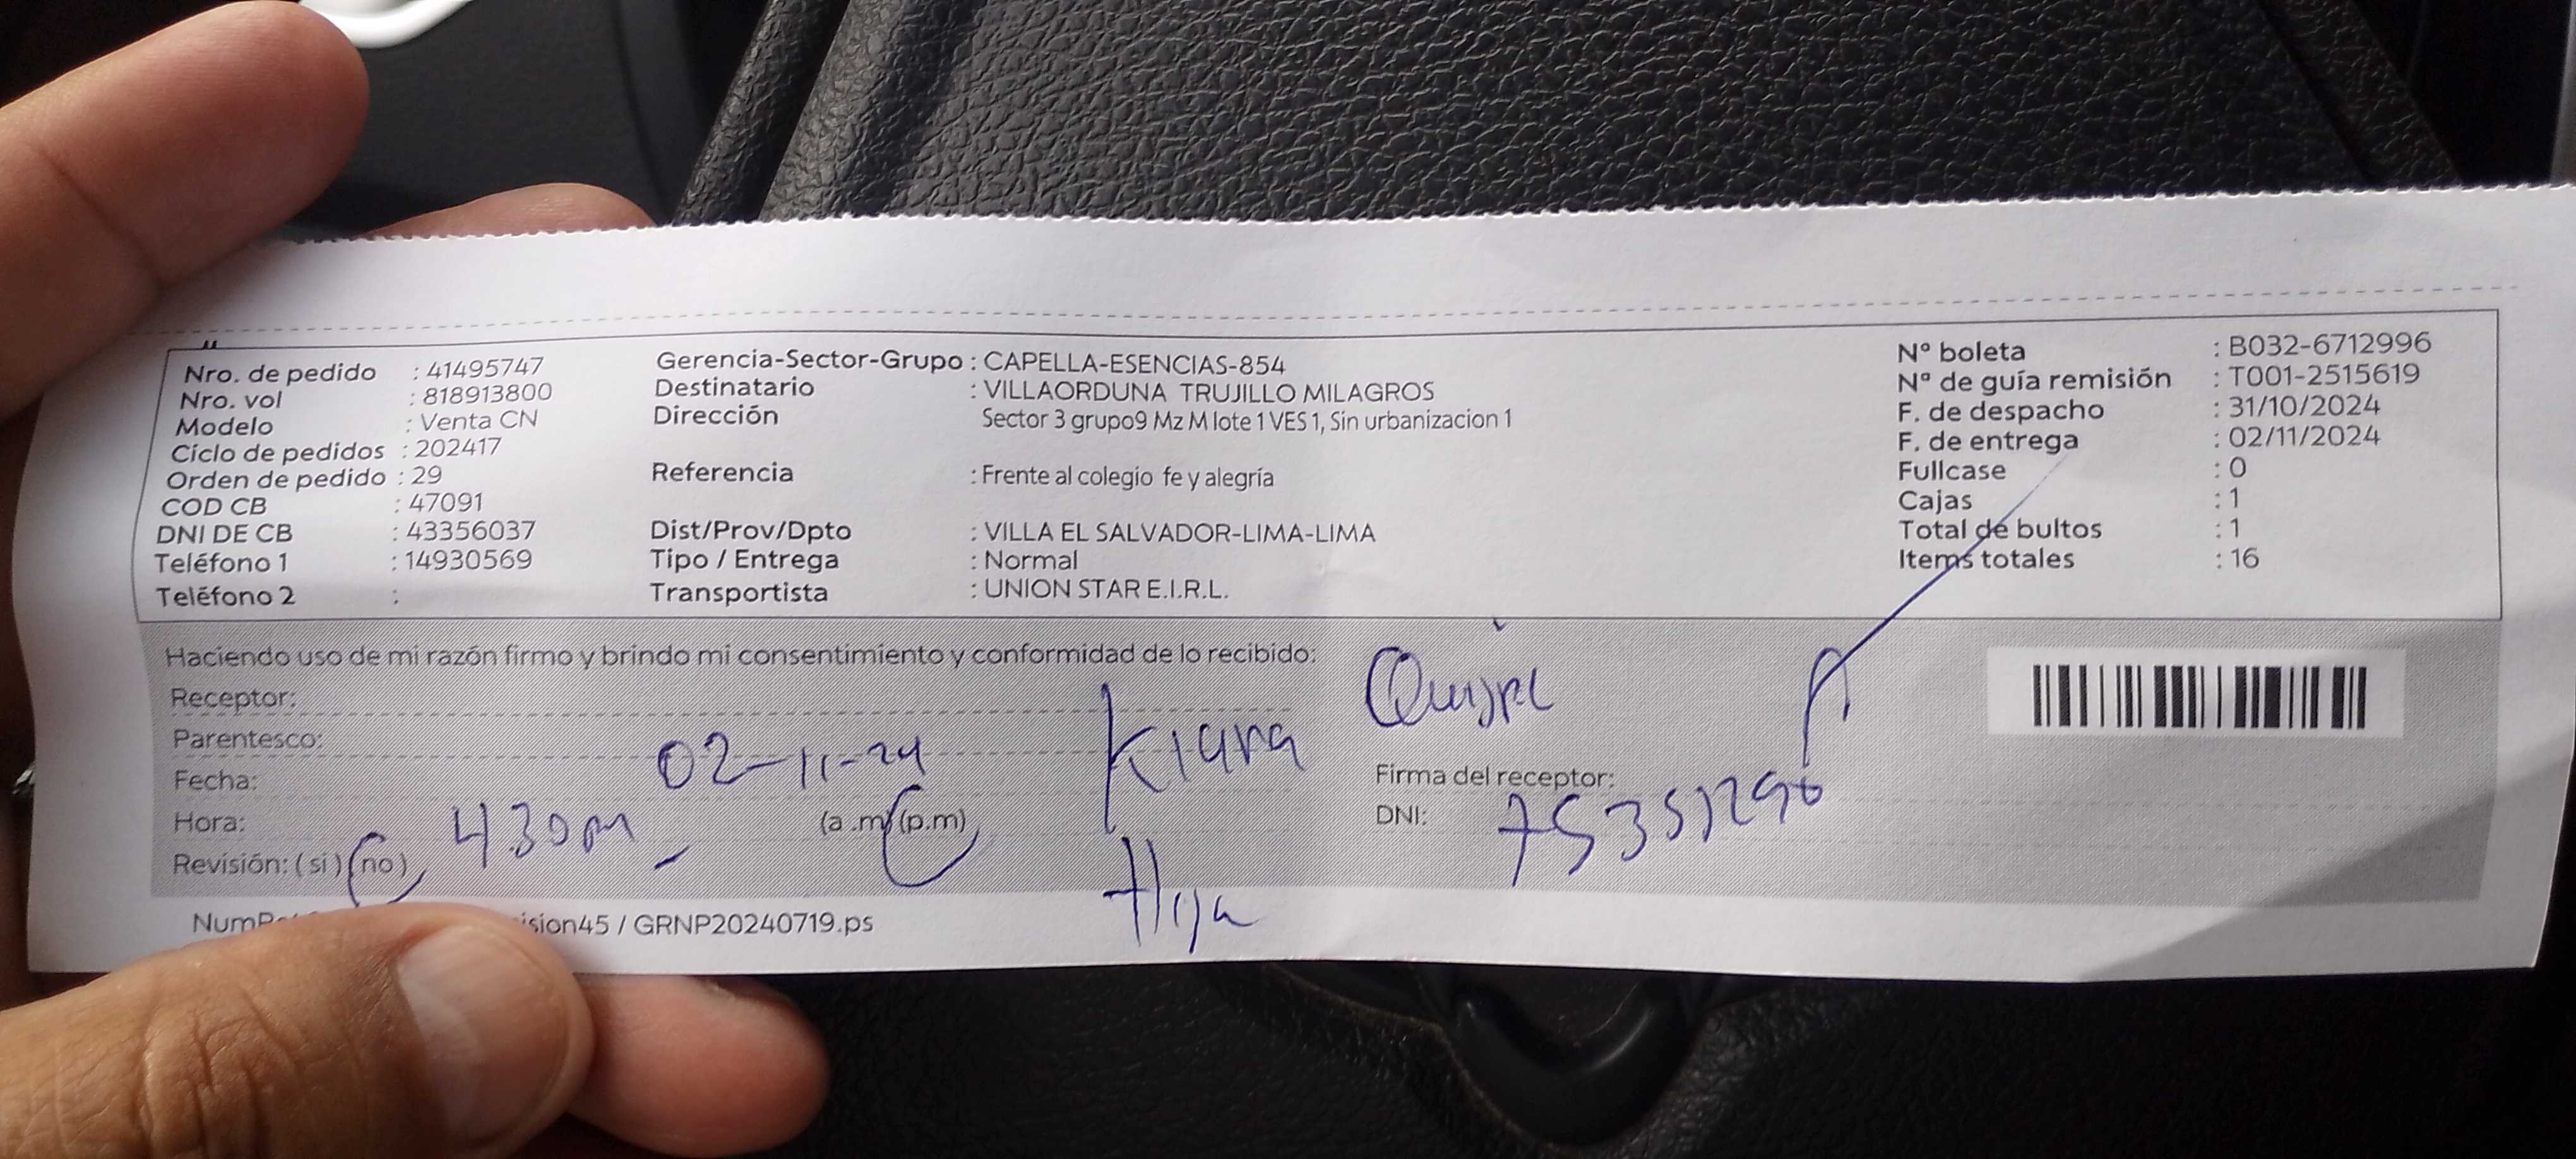 Nro. de pedido : 41495747
Nro. vol : 818913800
Modelo : Venta CN
Ciclo de pedidos : 202417
Orden de pedido : 29
COD CB : 47091
DNI DE CB : 43356037
Teléfono 1 : 14930569
Teléfono 2 :
Gerencia-Sector-Grupo : CAPELLA-ESENCIAS-854
Destinatario : VILLAORDUNA TRUJILLO MILAGROS
Dirección Sector 3 grupo9 Mz M lote 1 VES 1, Sin urbanizacion 1
Referencia : Frente al colegio fe y alegría
Dist/Prov/Dpto : VILLA EL SALVADOR-LIMA-LIMA
Tipo / Entrega : Normal
Transportista : UNION STAR E.I.R.L.
Nº boleta : B032-6712996
Nº de guía remisión : T001-2515619
F. de despacho : 31/10/2024
F. de entrega : 02/11/2024
Fullcase : 0
Cajas : 1
Total de bultos : 1
Items totales : 16
Haciendo uso de mi razón firmo y brindo mi consentimiento y conformidad de lo recibido:
Receptor: Kiara Quispe
Parentesco: Hija
Fecha: 02-11-24
Hora: 4.30pm (a .m) (p.m)
Revisión: ( si ) (no)
Firma del receptor:
DNI: 75351290
ision45 / GRNP20240719.ps